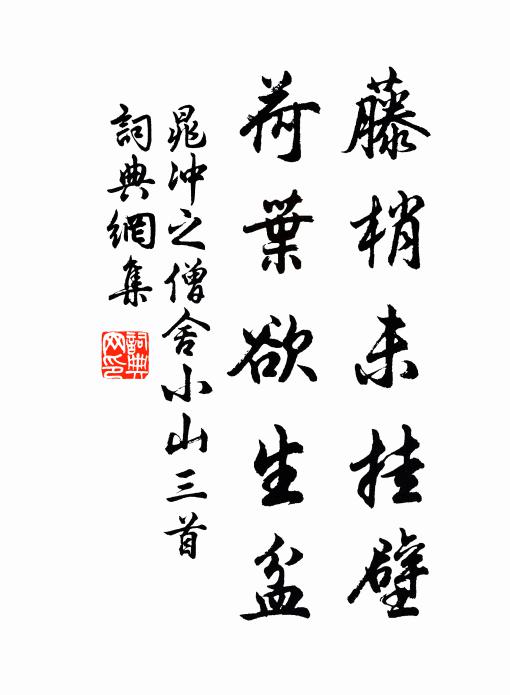 藤梢未挂壁
荷葉欲生盆
晁冲之僧舍小山三首
詞典網集
詞典网印